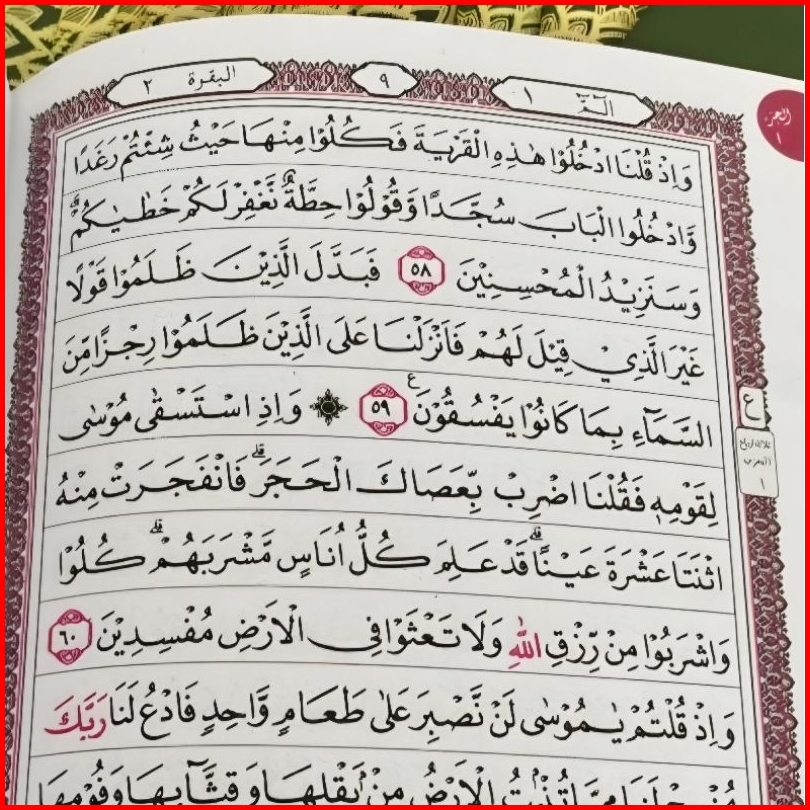 البقرة ٢
٩
الٓمّٓ ١
الجزء
١
وَاِذْ قُلْنَا ادْخُلُوْا هٰذِهِ الْقَرْيَةَ فَكُلُوْا مِنْهَا حَيْثُ شِئْتُمْ رَغَدًا
وَّادْخُلُوا الْبَابَ سُجَّدًا وَّقُوْلُوْا حِطَّةٌ نَّغْفِرْ لَكُمْ خَطٰيٰكُمْۗ
وَسَنَزِيْدُ الْمُحْسِنِيْنَ ٥٨ فَبَدَّلَ الَّذِيْنَ ظَلَمُوْا قَوْلًا
غَيْرَ الَّذِيْ قِيْلَ لَهُمْ فَاَنْزَلْنَا عَلَى الَّذِيْنَ ظَلَمُوْا رِجْزًا مِّنَ
السَّمَاۤءِ بِمَا كَانُوْا يَفْسُقُوْنَ ࣖ ٥٩ ۞ وَاِذِ اسْتَسْقٰى مُوْسٰى
ع
لِقَوْمِهٖ فَقُلْنَا اضْرِبْ بِّعَصَاكَ الْحَجَرَۗ فَانْفَجَرَتْ مِنْهُ
اثْنَتَا عَشْرَةَ عَيْنًاۗ قَدْ عَلِمَ كُلُّ اُنَاسٍ مَّشْرَبَهُمْۗ كُلُوْا
وَاشْرَبُوْا مِنْ رِّزْقِ اللّٰهِ وَلَا تَعْثَوْا فِى الْاَرْضِ مُفْسِدِيْنَ ٦٠
وَاِذْ قُلْتُمْ يٰمُوْسٰى لَنْ نَّصْبِرَ عَلٰى طَعَامٍ وَّاحِدٍ فَادْعُ لَنَا رَبَّكَ